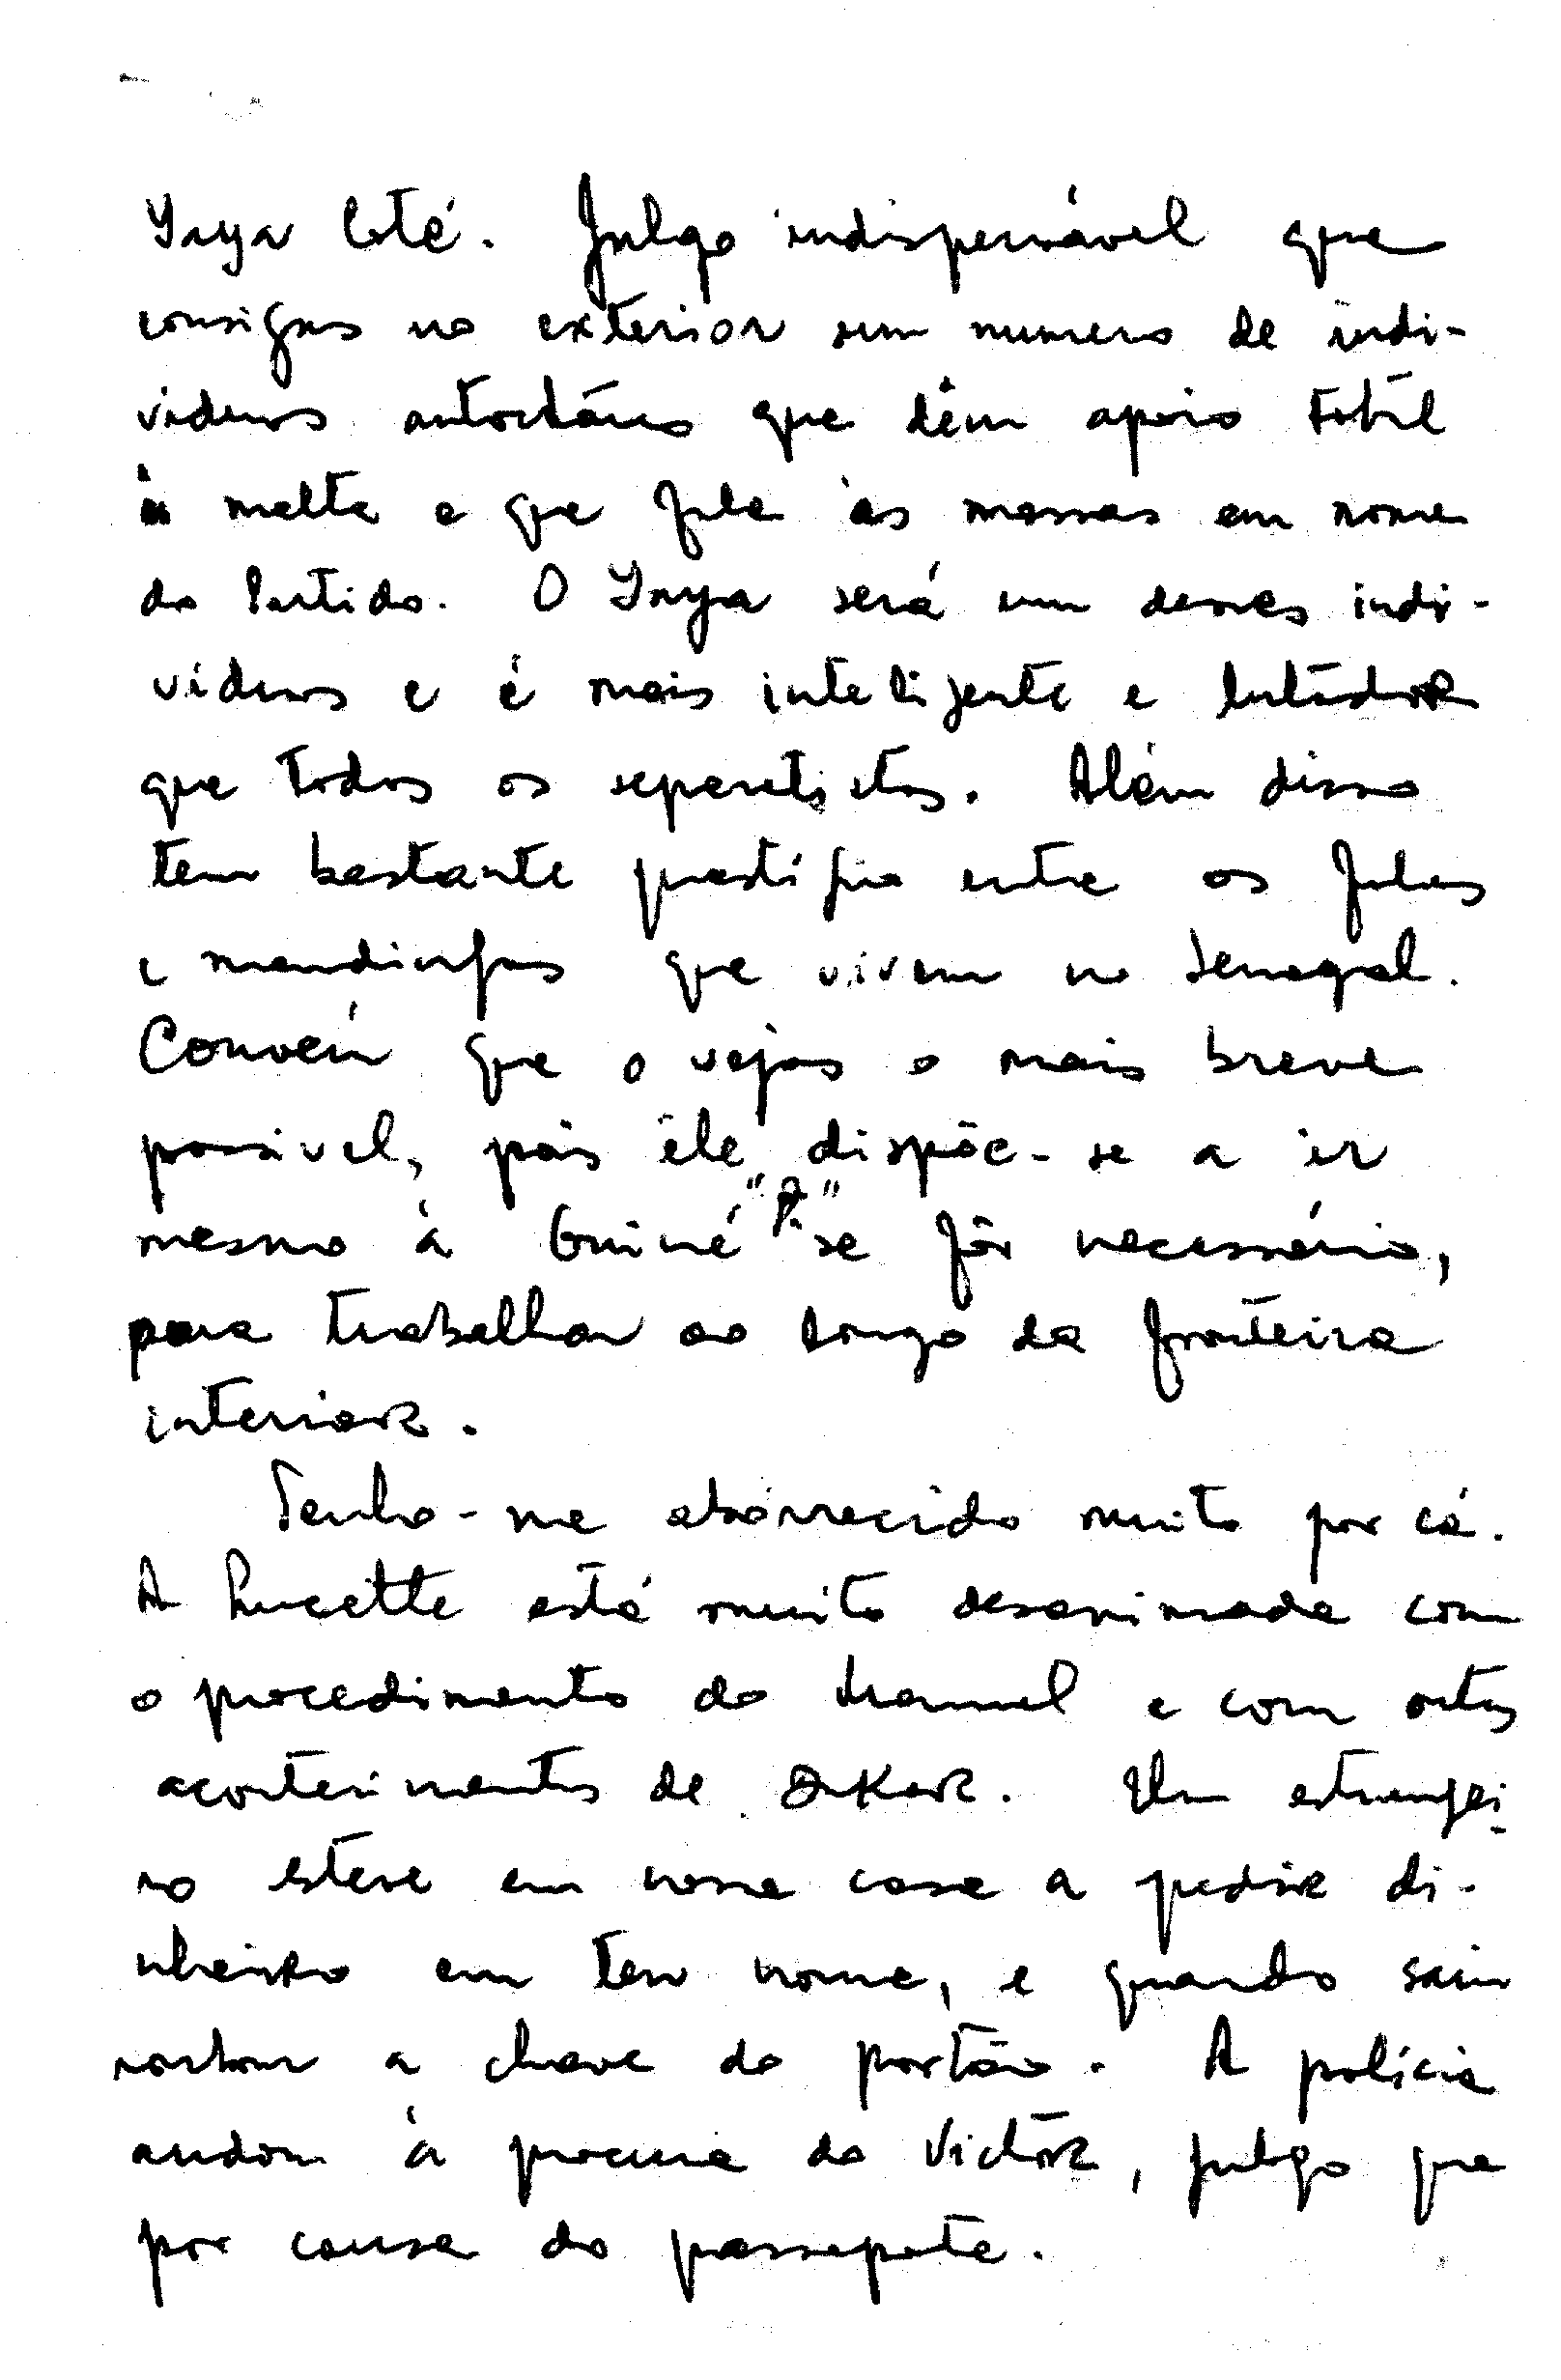 Yaya Coté. Julgo indispensável que
consigas no exterior um numero de indi-
viduos autoctónes que dêm apoio total
à malta e que fale às massas em nome
do Partido. O Yaya será um desses indi-
víduos e é mais inteligente e lutador
que todos os separatistas. Além disso
tem bastante prestígio entre os fulas
e mandingas que vivem no Senegal.
Convém que o vejas o mais breve
possivel, pois êle dispõe-se a ir
mesmo à Guiné "p." se fôr necessário,
para trabalhar ao longo da fronteira
interior.
Tenho-me aborrecido muito por cá.
A Lucette está muito desanimada com
o procedimento do Manuel e com outros
acontecimentos de Dakar. Um estrangei-
ro esteve em nossa casa a pedir di-
nheiro em teu nome, e quando saiu
roubou a chave do portão. A polícia
andou à procura do Victor, julgo que
por causa do passaporte.